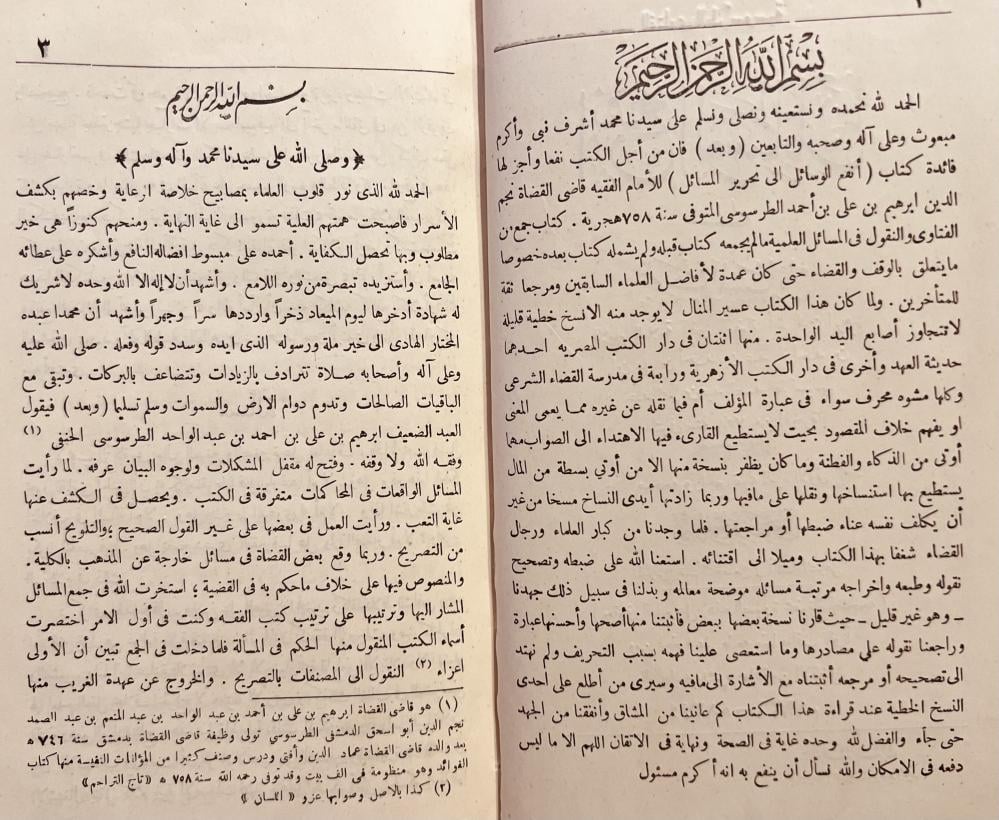 بسم الله الرحمن الرحيم
الحمد لله نحمده ونستعينه ونصلى ونسلم على سيدنا محمد أشرف نبى وأكرم
مبعوث وعلى آله وصحبه والتابعين (وبعد) فان من أجل الكتب نفعا وأجز لها
فائدة كتاب (أنفع الوسائل الى تحرير المسائل) للأمام الفقيه قاضى القضاة نجم
الدين ابرهيم بن على بن أحمد الطرسوسى المتوفى سنة ٧٥٨ هجرية . كتاب جمع من
الفتاوى والنقول فى المسائل العلمية مالم يجمعه كتاب قبله ولم يشمله كتاب بعده خصوصا
ما يتعلق بالوقف والقضاء حتى كان عمدة لأفاضل العلماء السابقين ومرجعا ثقة
للمتأخرين . ولما كان هذا الكتاب عسير المنال لا يوجد منه الا نسخ خطية قليلة
لا تتجاوز أصابع اليد الواحدة . منها اثنتان فى دار الكتب المصريه احدهما
حديثة العهد وأخرى فى دار الكتب الأزهرية ورابعة فى مدرسة القضاء الشرعى
وكلها مشوه محرف سواء فى عبارة المؤلف أم فيما نقله عن غيره مما يعمى المعنى
او يفهم خلاف المقصود بحيت لا يستطيع القارىء فيها الاهتداء الى الصواب مهما
أوتى من الذكاء والفطنة وما كان يظفر بنسخة منها الا من أوتي بسطة من المال
يستطيع بها استنساخها ونقلها على مافيها وربما زادتها أيدى النساخ مسخا من غير
أن يكلف نفسه عناء ضبطها أو مراجعتها . فلما وجدنا من كبار العلماء ورجال
القضاء شغفا بهذا الكتاب وميلا الى اقتنائه . استعنا الله على ضبطه وتصحيح
نقوله وطبعه واخراجه مرتبة مسائله موضحة معالمه وبذلنا فى سبيل ذلك جهدنا
ـ وهو غير قليل ـ حيث قارنا نسخة بعضها ببعض فأثبتنا منها أصحها وأحسنها عبارة
وراجعنا نقوله على مصادرها وما استعصى علينا فهمه بسبب التحريف ولم نهتد
الى تصحيحه أو مرجعه أثبتناه مع الأشارة الى مافيه وسيرى من أطلع على احدى
النسخ الخطية عند قراءة هذا الكتاب كم عانينا من المشاق وأنفقنا من الجهد
حتى جآء والفضل لله وحده غاية فى الصحة ونهاية فى الاتقان اللهم الا ما ليس
دفعه فى الامكان والله نسأل أن ينفع به انه أكرم مسئول
٣
بسم الله الرحمن الرحيم
﴿ وصلى الله على سيدنا محمد وآله وسلم ﴾
الحمد لله الذى نور قلوب العلماء بمصابيح خلاصة الرعاية وخصهم بكشف
الأسرار فاصبحت همتهم العلية تسمو الى غاية النهاية . ومنحهم كنوزا هى خير
مطلوب وبها تحصل الكفاية . أحمده على مبسوط افضاله النافع وأشكره على عطائه
الجامع . وأستزيده تبصرة من نوره اللامع . وأشهد أن لا إله إلا الله وحده لا شريك
له شهادة أدخرها ليوم الميعاد ذخراً وارددها سراً وجهراً وأشهد أن محمدا عبده
المختار الهادى الى خير ملة ورسوله الذى ايده وسدد قوله وفعله . صلى الله عليه
وعلى آله وأصحابه صلاة تترادف بالزيادات وتتضاعف بالبركات . وتبقى مع
الباقيات الصالحات وتدوم دوام الارض والسموات وسلم تسليما (وبعد) فيقول
العبد الضعيف ابرهيم بن على بن احمد بن عبد الواحد الطرسوسى الحنفى (١)
وفقه الله ولا وقفه . وفتح له مقفل المشكلات ولوجوه البيان عرفه . لما رأيت
المسائل الواقعات فى المحاكمات متفرقة فى الكتب . ويحصل فى الكشف عنها
غاية التعب . ورأيت العمل فى بعضها على غير القول الصحيح ؛ والتلويح أنسب
من التصريح . وربما وقع بعض القضاة فى مسائل خارجة عن المذهب بالكلية .
والمنصوص فيها على خلاف ماحكم به فى القضية ؛ استخرت الله فى جمع المسائل
المشار اليها وترتيبها على ترتيب كتب الفقه وكنت فى أول الامر اختصرت
أسماء الكتب المنقول منها الحكم فى المسألة فلما دخلت فى الجمع تبين أن الأولى
اعزاء (٢) النقول الى المصنفات بالتصريح . والخروج عن عهدة الغريب منها
(١) هو قاضى القضاة ابرهيم بن على بن أحمد بن عبد الواحد بن عبد المنعم بن عبد الصمد
نجم الدين أبو اسحق الدمشقى الطرسوسي تولى وظيفة قاضى القضاة بدمشق سنة ٧٤٦ ه
بعد والده قاضى القضاة عماد الدين وأفتى ودرس وصنف كثيرا من المؤلفات النفيسة منها كتاب
الفوائد وهو منظومة فى الف بيت وقد توفى رحمه الله سنة ٧٥٨ ه «تاج التراجم»
(٢) كذا بالاصل وصوابها عزو « اللسان »